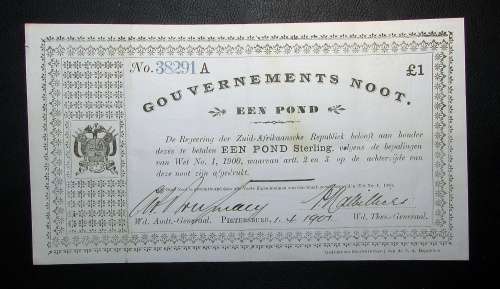 No. 38291 A £1
GOUVERNEMENTS NOOT.
EEN POND
De Regeering der Zuid-Afrikaansche Republiek belooft aan houder
dezes te betalen EEN POND Sterling, volgens de bepalingen
van Wet No. 1, 1900, waarvan artt. 2 en 3 op de achterzijde van
deze noot zijn afgedrukt.
Wd. Audt.-Generaal. PIETERSBURG, 1.4.1901 Wd. Thes.-Generaal.